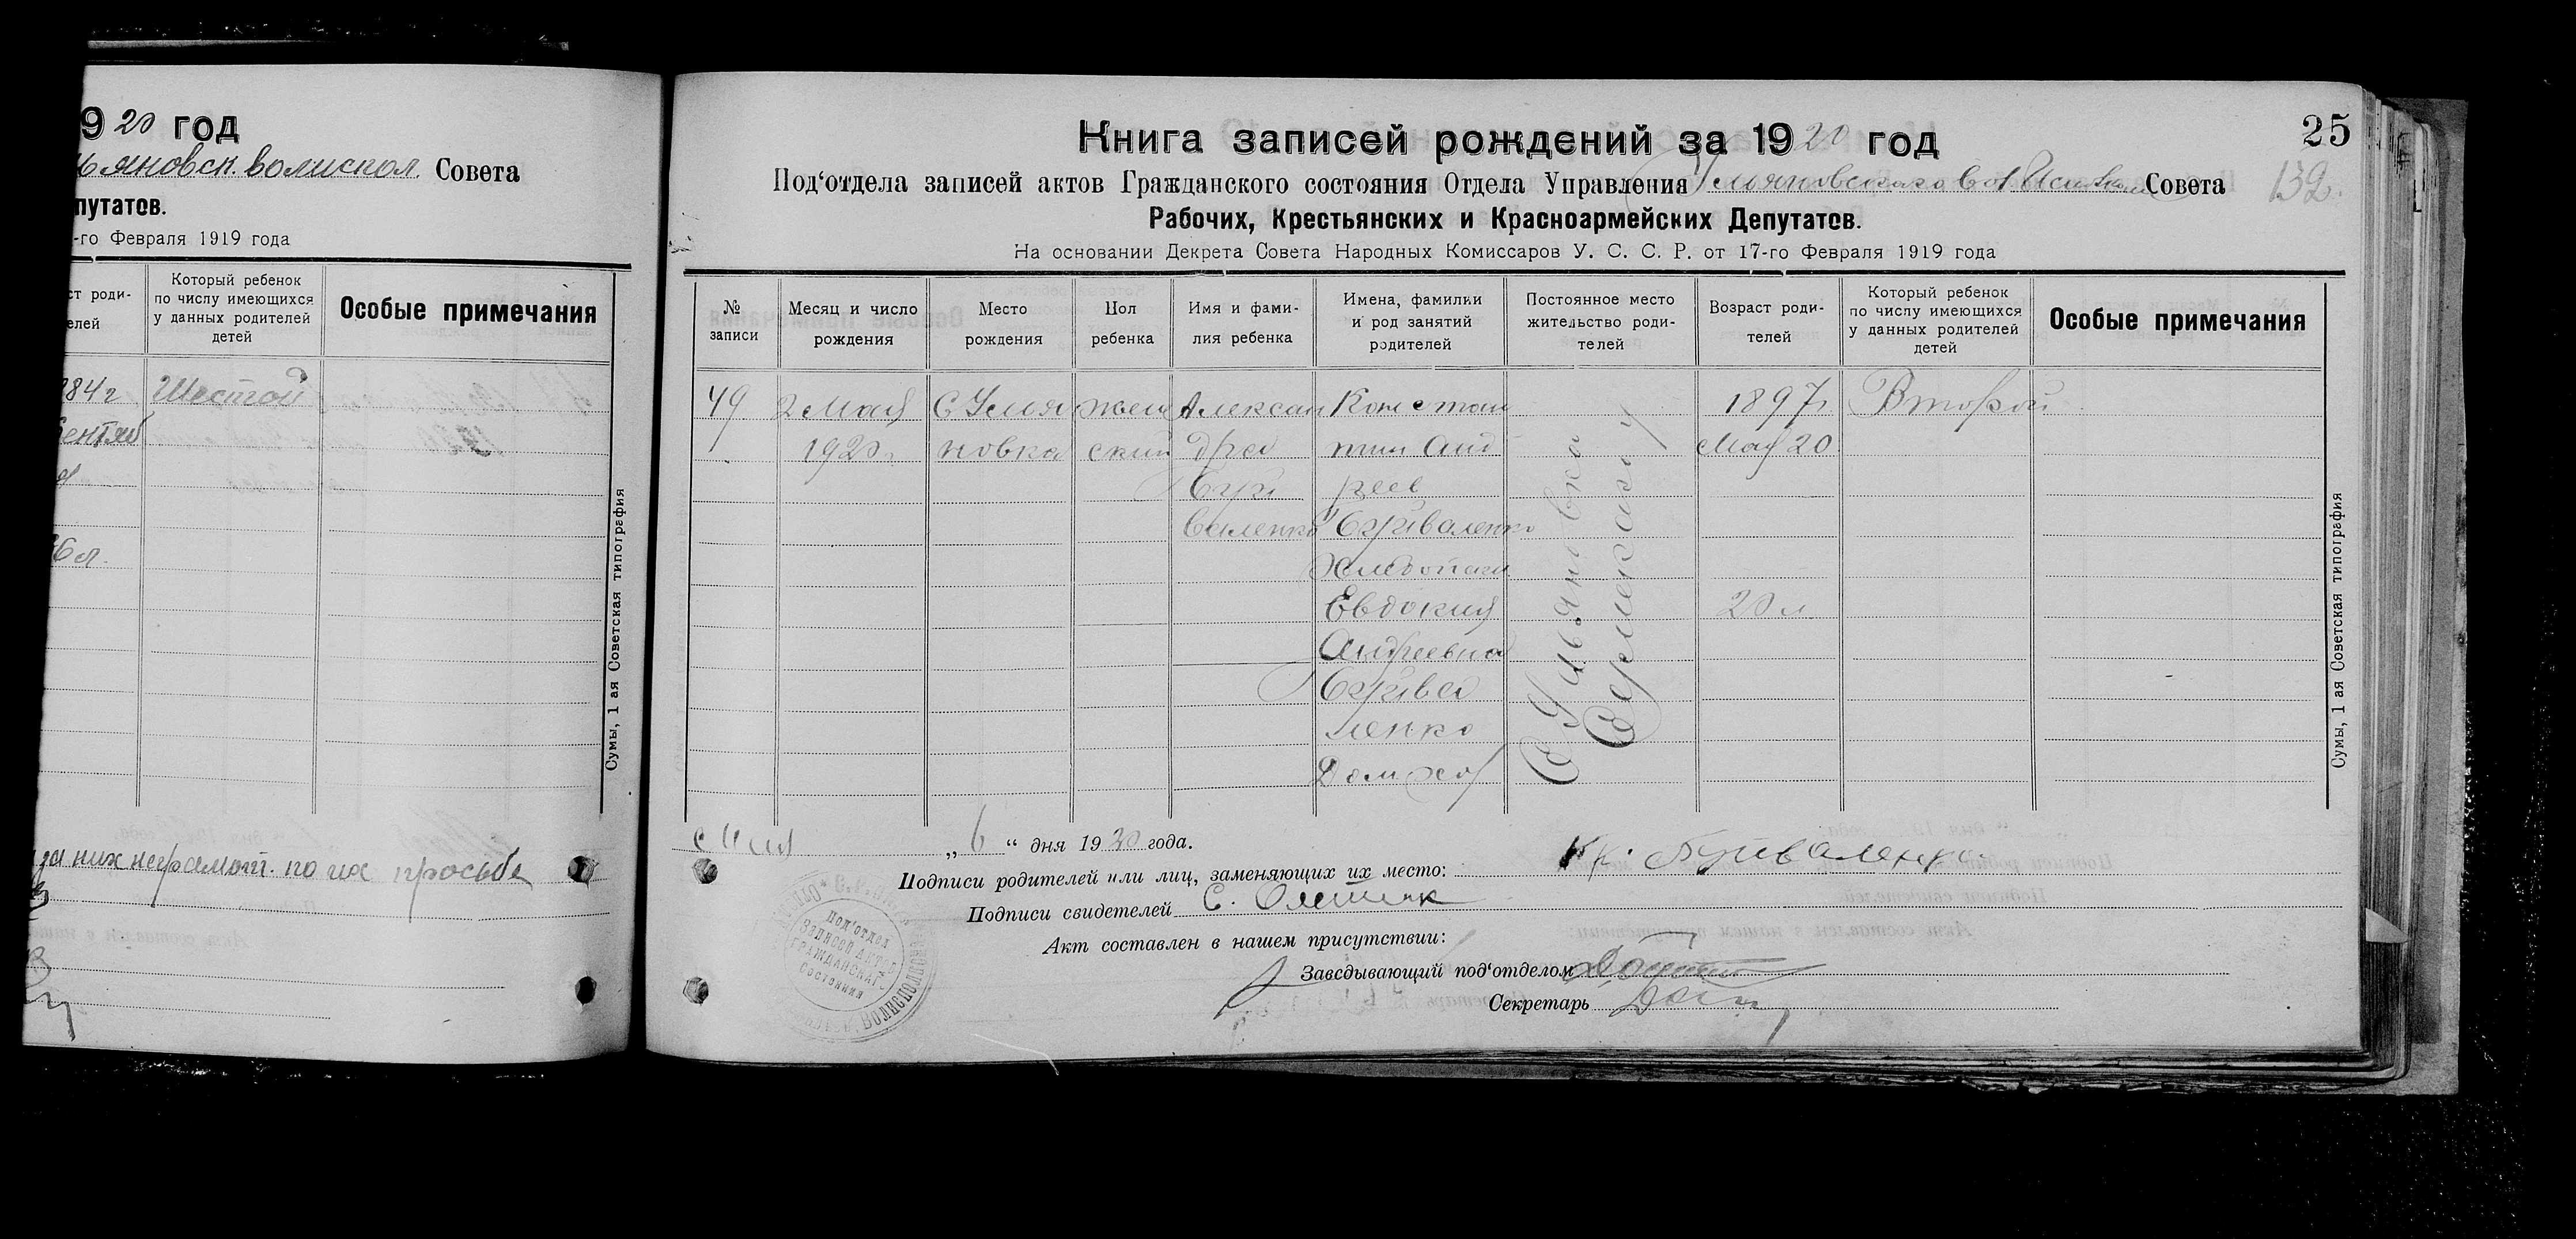 9 20 год
ьяновск. волиспол. Совета
путатов.
-го Февраля 1919 года
ст роди-
елей
Который ребенок
по числу имеющихся
у данных родителей
детей
Особые примечания
84 г Шестой
сентяб
6 л.
Сумы, 1 ая Советская типография
за них неграмот. по их просьбе
Книга записей рождений за 1920 год
25
Под‘отдела записей актов Гражданского состояния Отдела Управления Ульяновского Совета
132.
Рабочих, Крестьянских и Красноармейских Депутатов.
На основании Декрета Совета Народных Комиссаров У. С. С. Р. от 17-го Февраля 1919 года
№
записи
Месяц и число
рождения
Место
рождения
Пол
ребенка
Имя и фами-
лия ребенка
Имена, фамилии
и род занятий
родителей
Постоянное место
жительство роди-
телей
Возраст роди-
телей
Который ребенок
по числу имеющихся
у данных родителей
детей
Особые примечания
49 2 Мая С Улья жен Алексан Констан 1897 г. Второй
1920 г. новка ский дра тин Анд Мая 20
реев
валенко
Евдокия 20 л
Андреевна
ленко
С Ульяновка
Сумы, 1 ая Советская типография
Мая „6“ дня 1920 года.
Подписи родителей или лиц, заменяющих их место:
Подписи свидетелей С.
Акт составлен в нашем присутствии:
Заведывающий под‘отделом
Секретарь
Под‘отдел
Записей Актов
Гражданскаго
Состояния